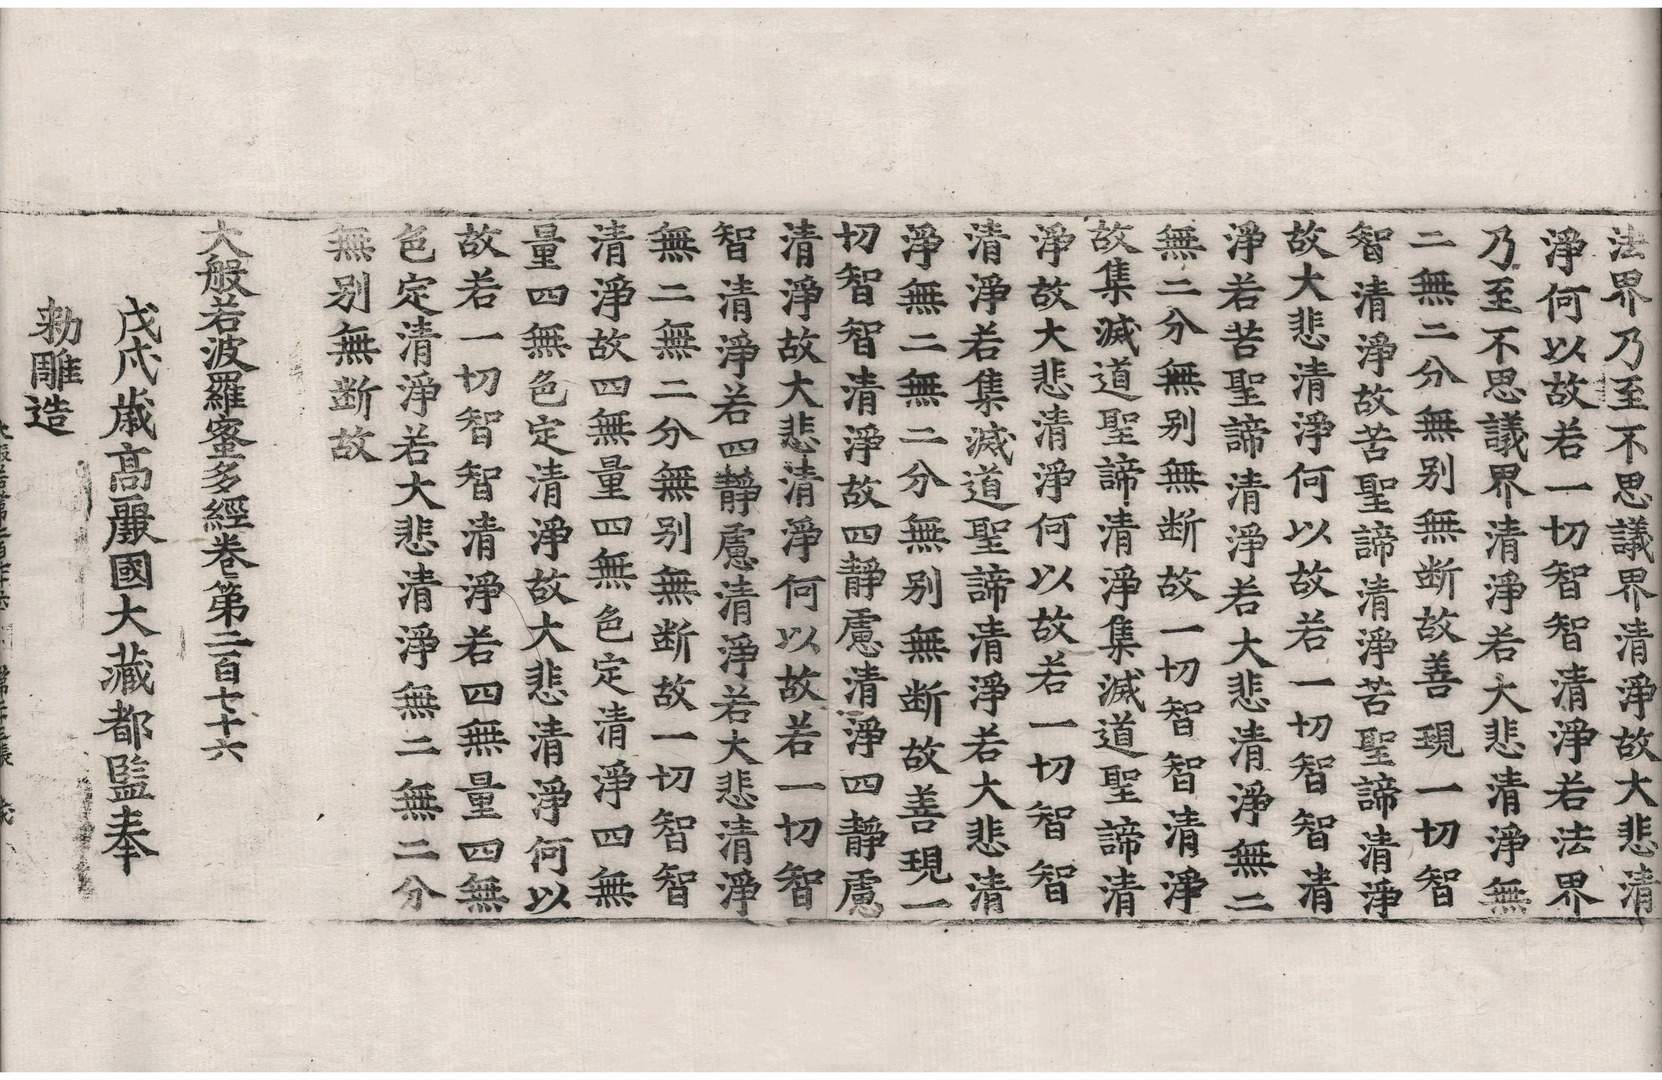 法界乃至不思議界清淨故大悲清
淨何以故若一切智智清淨若法界
乃至不思議界清淨若大悲清淨無
二無二分無別無断故善現一切智
智清淨故苦聖諦清淨苦聖諦清淨
故大悲清淨何以故若一切智智清
淨若苦聖諦清淨若大悲清淨無二
無二分無別無断故一切智智清淨
故集滅道聖諦清淨集滅道聖諦清
淨故大悲清淨何以故若一切智智
清淨若集滅道聖諦清淨若大悲清
淨無二無二分無別無断故善現一
切智智清淨故四靜慮清淨四靜慮
清淨故大悲清淨何以故若一切智
智清淨若四靜慮清淨若大悲清淨
無二無二分無別無断故一切智智
清淨故四無量四無色定清淨四無
量四無色定清淨故大悲清淨何以
故若一切智智清淨若四無量四無
色定清淨若大悲清淨無二無二分
無別無断故
大般若波羅蜜多經卷第二百七十六
戊戌歲高麗國大藏都監奉
勑雕造